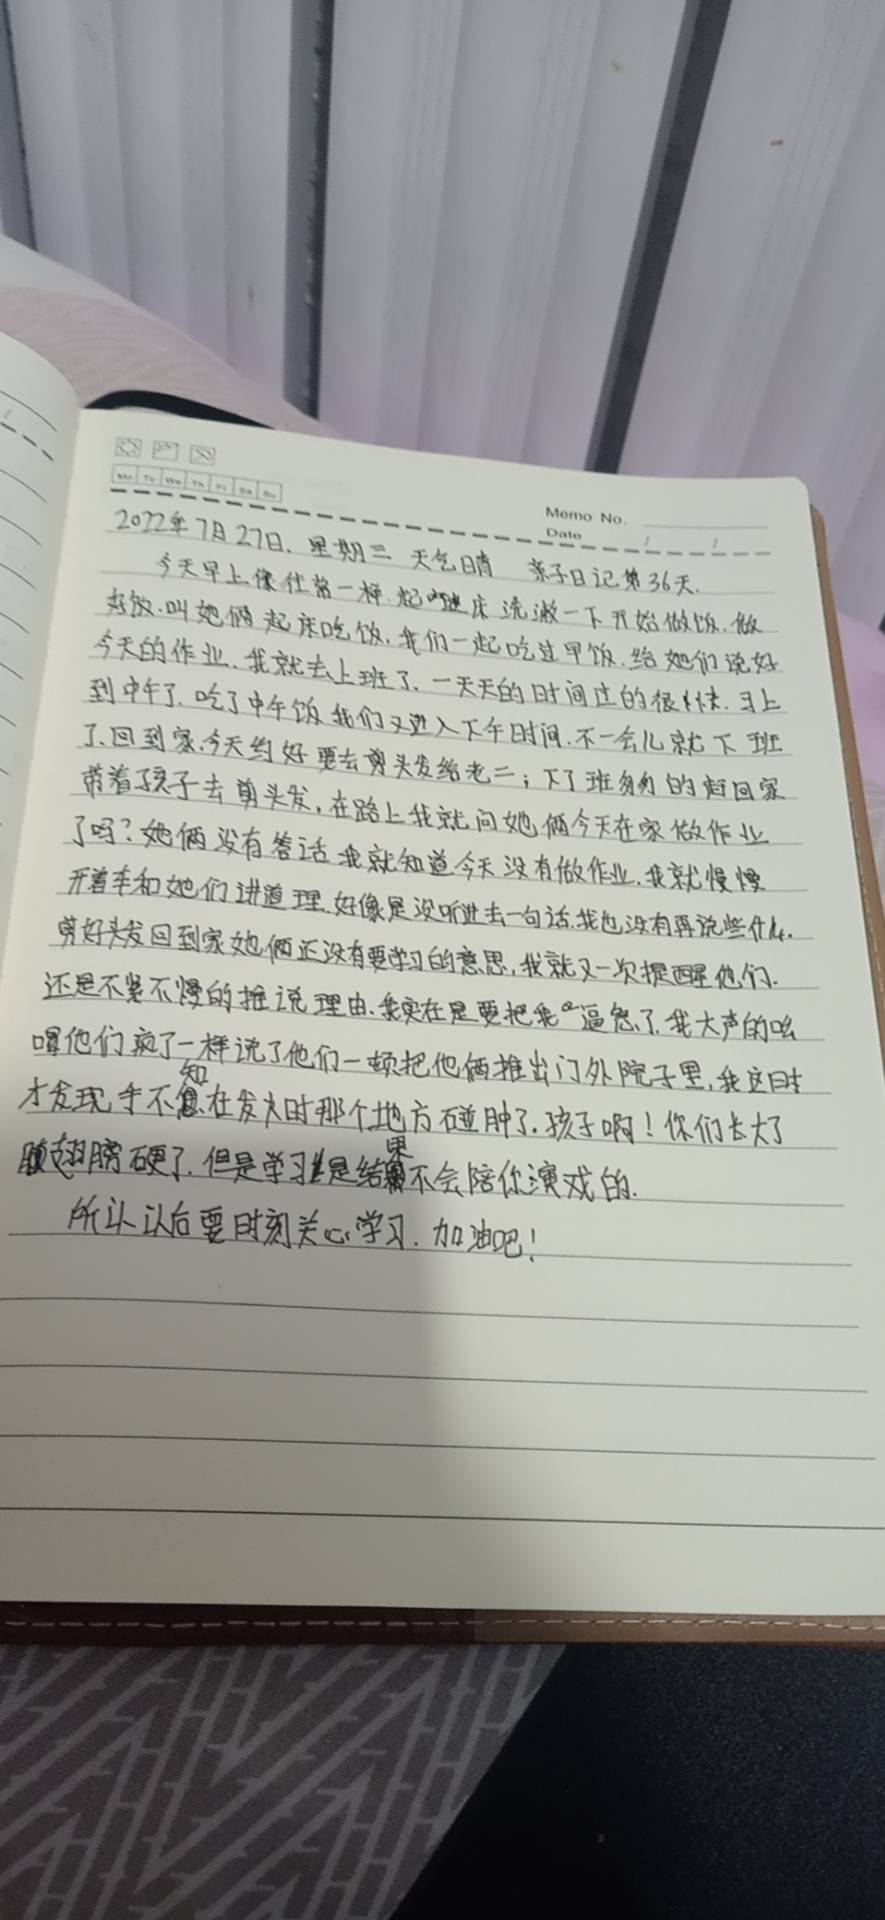 Mo Tu We Th Fr Sa Su
Memo No.
Date / /
2022年7月27日. 星期三 天气晴 亲子日记第36天.
今天早上像往常一样.起床洗漱一下开始做饭.做
好饭.叫她俩起床吃饭.我们一起吃过早饭.给她们说好
今天的作业.我就去上班了.一天天的时间过的很快.马上
到中午了.吃了中午饭我们又进入下午时间.不一会儿就下班
了.回到家.今天约好要去剪头发给老二;下了班匆匆的赶回家
带着孩子去剪头发,在路上我就问她俩今天在家做作业
了吗?她俩没有答话我就知道今天没有做作业.我就慢慢
开着车和她们讲道理.好像是没听进去一句话.我也没有再说些什么.
剪好头发回到家她俩还没有要学习的意思,我就又一次提醒他们.
还是不紧不慢的推说理由.我实在是要把我逼急了.我大声的吆
喝他们疯了一样说了他们一顿把他俩推出门外院子里,我这时
才发现手不知在发火时那个地方碰肿了.孩子啊!你们长大了
翅膀硬了.但是学习是结果不会陪你演戏的.
所以以后要时刻关心学习.加油吧!